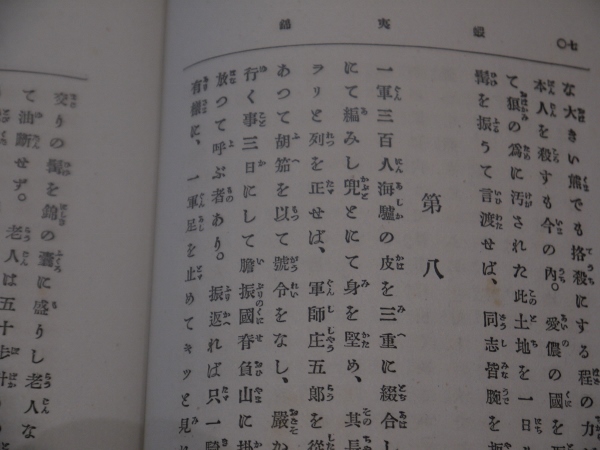 七〇
な大きい熊でも挌殺にする程の力
本人を殺すも今の內。愛儂の國を
て狼の爲に汚された此土地を一日
髯を振うて言渡せば、同志皆腕を
第八
一軍三百人海驢の皮を三重に綴合し
にて編みし兜とにて身を堅め、其長
ラリと列を正せば、軍師庄五郎を從
あつて胡笳を以て號令をなし、嚴か
行く事三日にして膽振國脊負山に掛
放つて呼ぶ者あり。振返れば只一騎
有樣に、一軍足を止めてキッと見
交りの髯を錦の嚢に盛りし老人な
て油斷せず。老人は五十步計